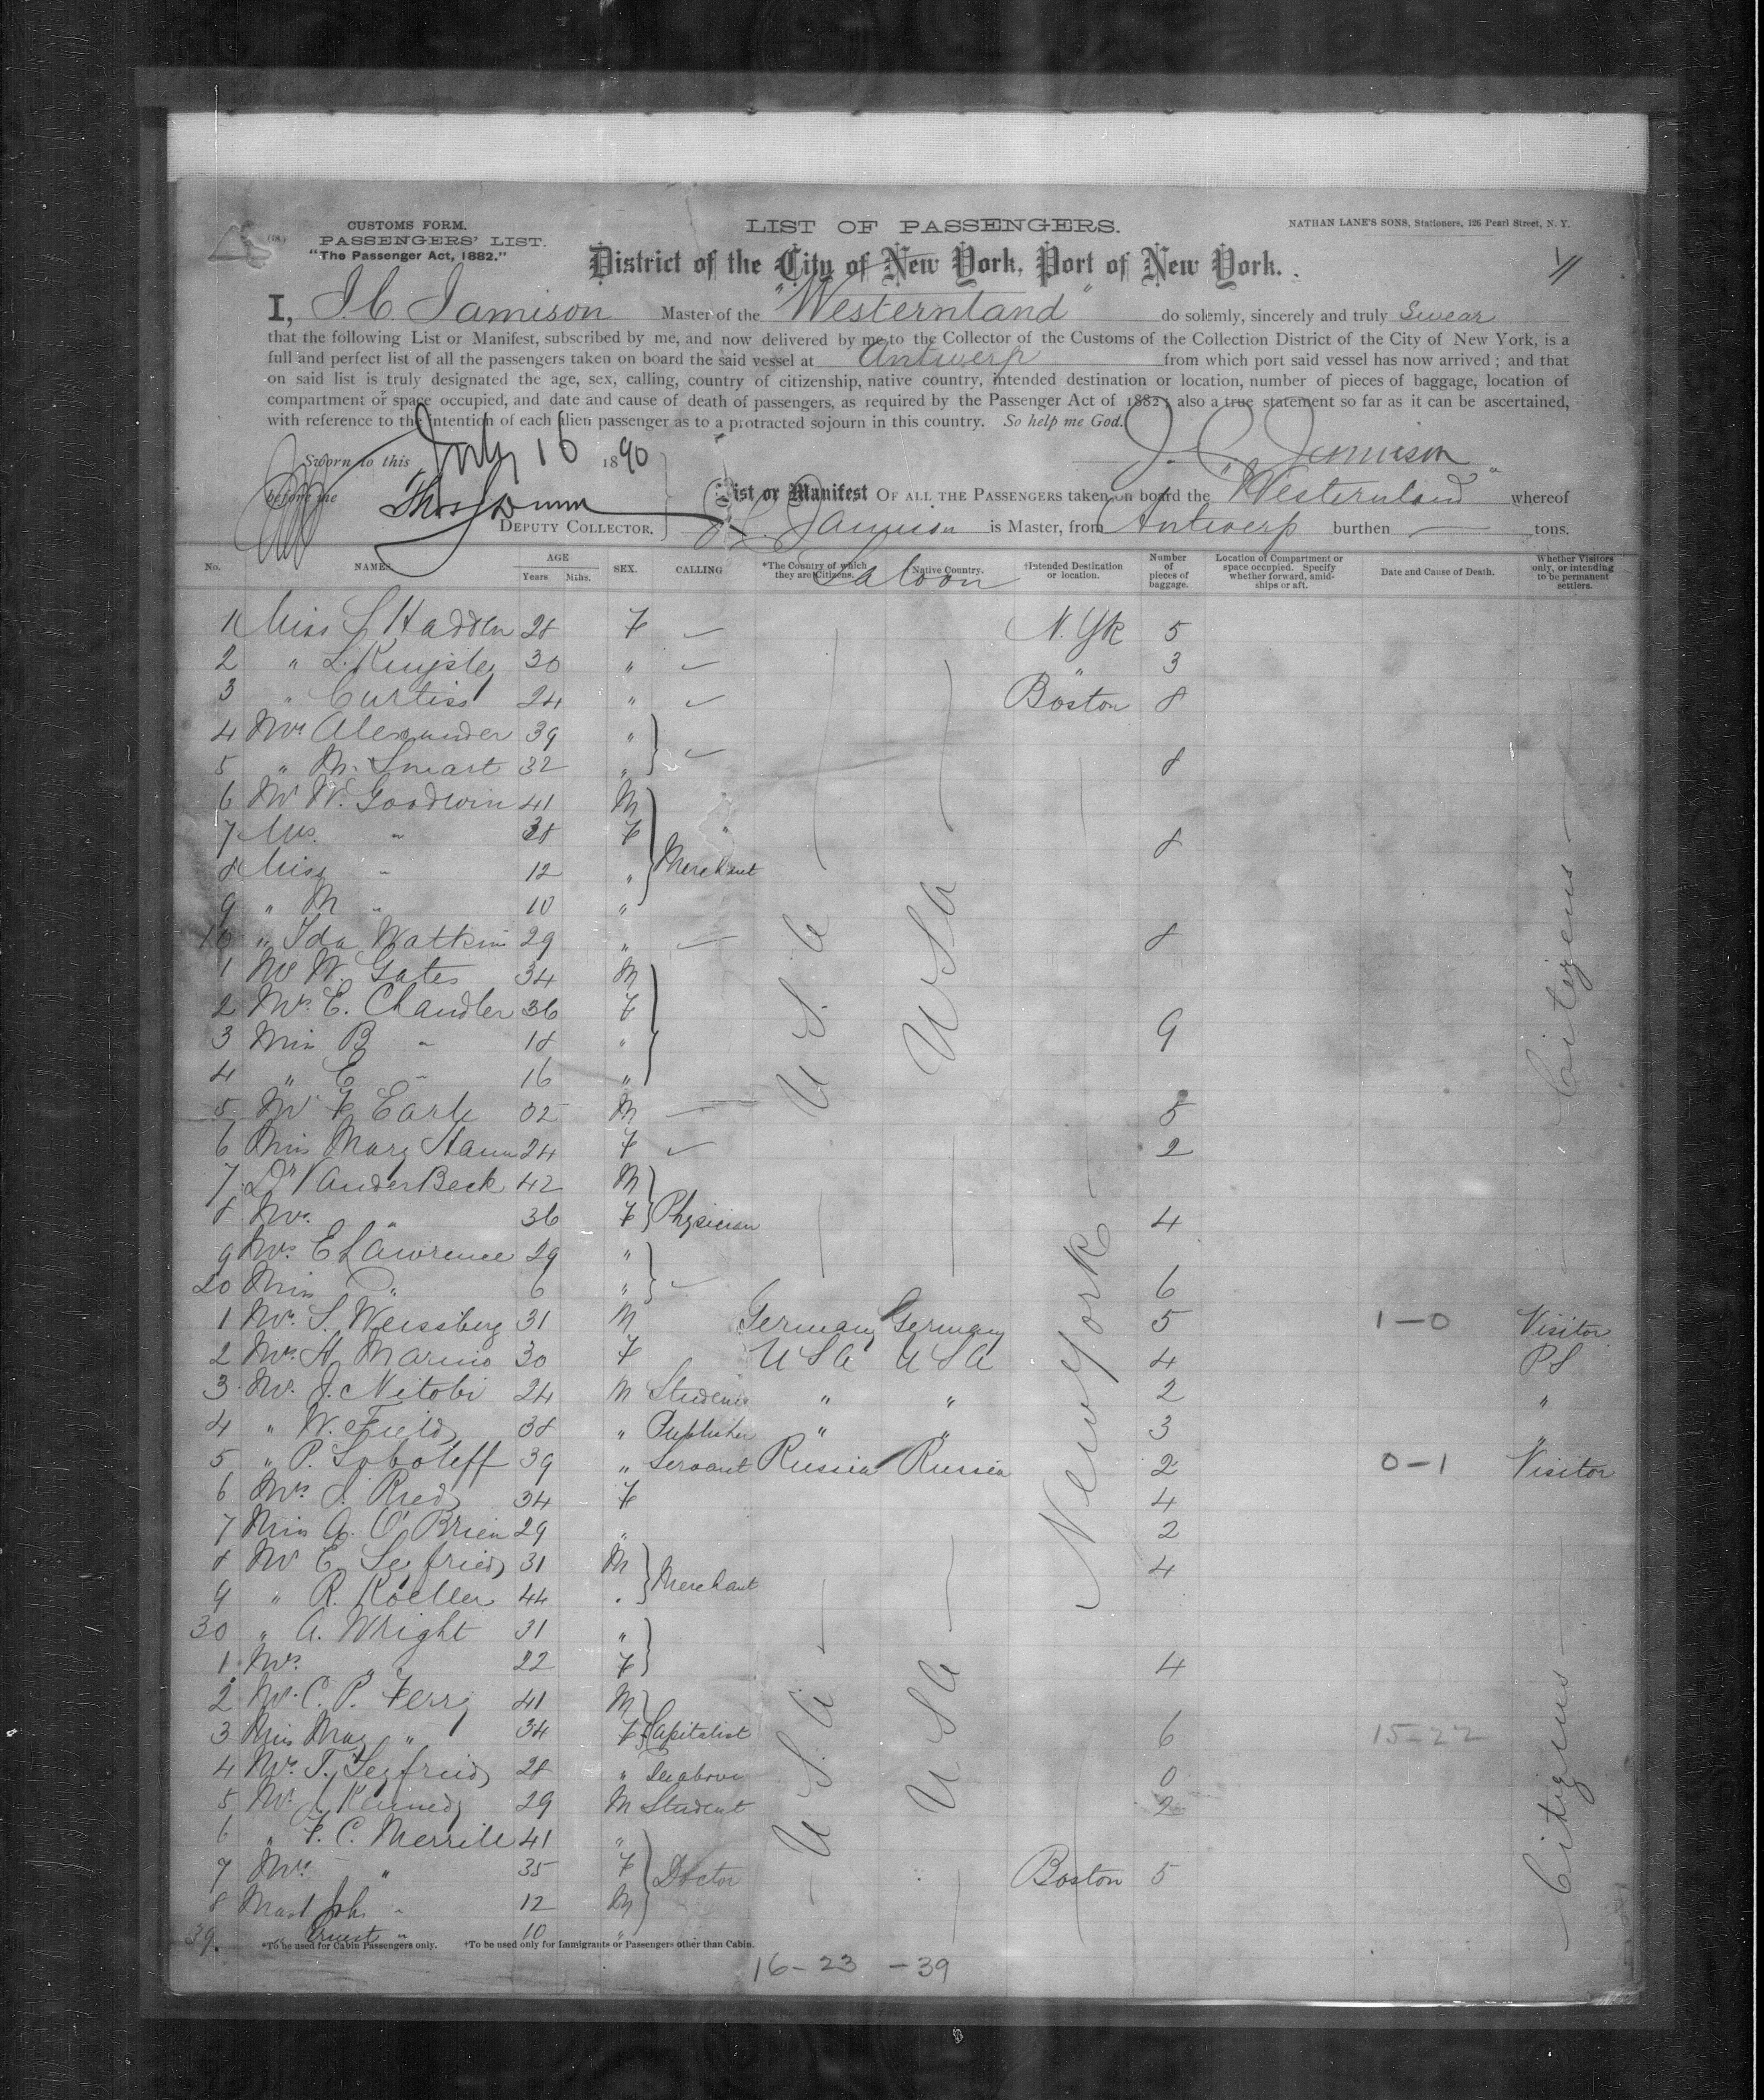 CUSTOMS FORM.
PASSENGERS' LIST.
"The Passenger Act, 1882."
LIST OF PASSENGERS.
NATHAN LANE'S SONS, Stationers, 126 Pearl Street, N. Y.
District of the City of New York, Port of New York.
I, J. C. Jamison Master of the "Westernland" do solemnly, sincerely and truly swear
that the following List or Manifest, subscribed by me, and now delivered by me to the Collector of the Customs of the Collection District of the City of New York, is a
full and perfect list of all the passengers taken on board the said vessel at Antwerp from which port said vessel has now arrived ; and that
on said list is truly designated the age, sex, calling, country of citizenship, native country, intended destination or location, number of pieces of baggage, location of
compartment or space occupied, and date and cause of death of passengers, as required by the Passenger Act of 1882 ; also a true statement so far as it can be ascertained,
with reference to the intention of each alien passenger as to a protracted sojourn in this country. So help me God.
Sworn to this July 16 1890 J. C. Jamison
before me
DEPUTY COLLECTOR.
List or Manifest OF ALL THE PASSENGERS taken on board the "Westernland" whereof
J. C. Jamison is Master, from Antwerp burthen — tons.
No. NAMES. AGE Years Mths. SEX. CALLING *The Country of which they are Citizens. Native Country. †Intended Destination or location. Number of pieces of baggage. Location of Compartment or space occupied. Specify whether forward, amidships or aft. Date and Cause of Death. Whether Visitors only, or intending to be permanent settlers.
Saloon
1 Miss S Hadden 28 F N. Yk 5
2 " L. Kingsley 30 " " 3
3 " Curtiss 24 " Boston 8
4 Mrs Alexander 39 "
5 " M. Smart 32 " 8
6 Mr W. Goodwin 41 M
7 Mrs. " 38 F 8
8 Miss " 12 " Merchant
9 " M " 10 "
10 " Ida Watkins 29 " 8
1 Mr W. Gates 34 M
2 Mrs. E. Chandler 36 F
3 Miss B " 18 " 9
4 " E " 16 "
5 Mr F Earle 32 M 8
6 Miss Mary Hann 24 F 2
7 Dr VanderBeck 42 M
8 Mrs. " 36 F Physician 4
9 Mrs E Lawrence 29 "
20 Miss " 6 " 6
U S A U S A
Citizens
1 Mr. S. Weissberg 31 M Germany Germany 5 1-0 Visitor
2 Mrs. H. Marino 30 F U S A U S A 4 P S
3 Mr. J. Nitobi 24 M Student " " 2 "
4 " W. Field 38 " Publisher " " 3 "
5 " P. Soboleff 39 " Servant Russia Russia 2 0-1 Visitor
6 Mrs J. Ried 34 F 4
7 Miss A. O'Brien 29 " 2
8 Mr E. Seyfried 31 M 4
9 " R. Koeller 44 " Merchant
30 " A. Wright 31 "
1 Mrs. " 22 F 4
2 Mr. C. P. Ferry 41 M
3 Miss May " 34 F Capitalist 6 15-22
4 Mrs. T. Seyfried 28 " See above 0
5 Mr J Kennedy 29 M Student 2
6 " F. C. Merrill 41 "
7 Mrs " 35 F Doctor Boston 5
8 Mast John " 12 M
39. " Ernest " 10 "
New York
U S A U S A
Citizens
*To be used for Cabin Passengers only. †To be used only for Immigrants or Passengers other than Cabin.
16 - 23 - 39